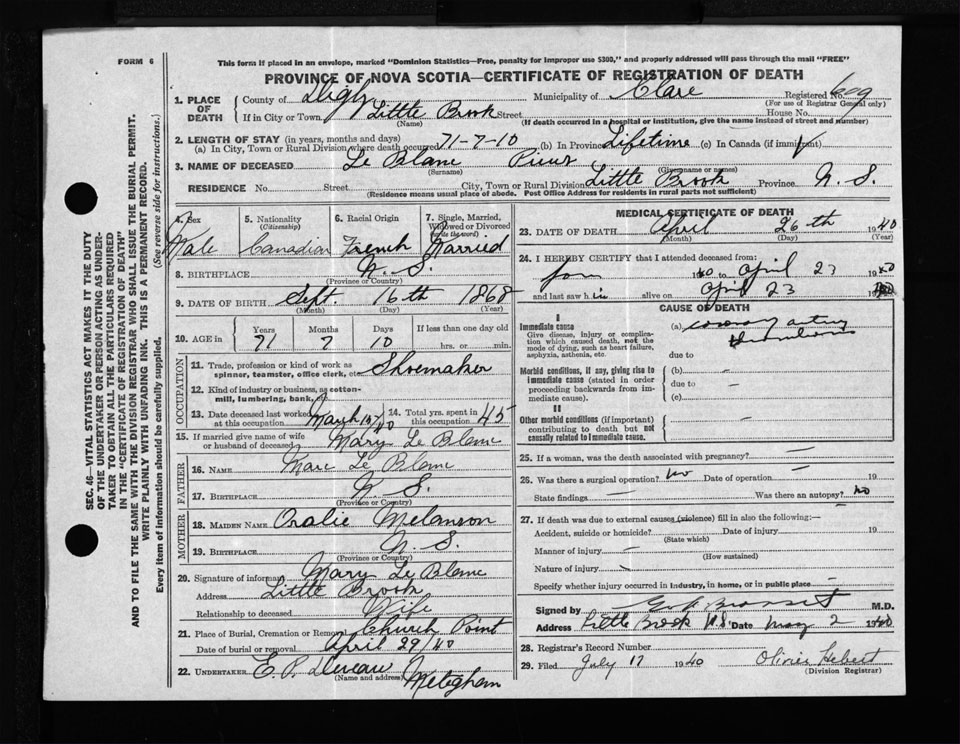 FORM 6
This form if placed in an envelope, marked "Dominion Statistics—Free, penalty for improper use $300," and properly addressed will pass through the mail "FREE"
PROVINCE OF NOVA SCOTIA—CERTIFICATE OF REGISTRATION OF DEATH
1. PLACE OF DEATH County of Digby Municipality of Clare Registered No. 609
(For use of Registrar General only)
If in City or Town Little Brook Street House No.
(Name) (If death occurred in a hospital or institution, give the name instead of street and number)
2. LENGTH OF STAY (in years, months and days)
(a) In City, Town or Rural Division where death occurred 71-7-10 (b) In Province Lifetime (c) In Canada (if immigrant)
3. NAME OF DECEASED Le Blanc Pius
(Surname) (Given name or names)
RESIDENCE No. Street City, Town or Rural Division Little Brook Province N. S.
(Residence means usual place of abode. Post Office Address for residents in rural parts not sufficient)
4. Sex Male
5. Nationality (Citizenship) Canadian
6. Racial Origin French
7. Single, Married, Widowed or Divorced (write the word) Married
8. BIRTHPLACE N. S.
(Province or Country)
9. DATE OF BIRTH Sept. 16th 1868
(Month) (Day) (Year)
10. AGE in Years Months Days If less than one day old
71 7 10 hrs. or min.
OCCUPATION
11. Trade, profession or kind of work as spinner, teamster, office clerk, etc. Shoemaker
12. Kind of industry or business, as cotton-mill, lumbering, bank,
13. Date deceased last worked at this occupation March 15/40
14. Total yrs. spent in this occupation 45
15. If married give name of wife or husband of deceased Mary Le Blanc
FATHER
16. NAME Marc Le Blanc
17. BIRTHPLACE N. S.
(Province or Country)
MOTHER
18. MAIDEN NAME Oralie Melanson
19. BIRTHPLACE N. S.
(Province or Country)
20. Signature of informant Mary Le Blanc
Address Little Brook
Relationship to deceased Wife
21. Place of Burial, Cremation or Removal Church Point
Date of burial or removal April 29/40
22. UNDERTAKER E. P. Deveau
(Name and address) Meteghan
MEDICAL CERTIFICATE OF DEATH
23. DATE OF DEATH April 26th 1940
(Month) (Day) (Year)
24. I HEREBY CERTIFY that I attended deceased from:
1940 to April 23 1940
and last saw h im alive on April 23 1940
CAUSE OF DEATH
I
Immediate cause
Give disease, injury or complication which caused death, not the mode of dying, such as heart failure, asphyxia, asthenia, etc.
(a) coronary artery thrombosis
due to
Morbid conditions, if any, giving rise to immediate cause (stated in order proceeding backwards from immediate cause).
(b) –
due to –
(c)
II
Other morbid conditions (if important) contributing to death but not causally related to immediate cause.
25. If a woman, was the death associated with pregnancy? —
26. Was there a surgical operation? no Date of operation — 19
State findings — Was there an autopsy? no
27. If death was due to external causes (violence) fill in also the following:—
Accident, suicide or homicide? Date of injury 19
(State which)
Manner of injury —
(How sustained)
Nature of injury —
Specify whether injury occurred in industry, in home, or in public place —
Signed by M.D.
Address Little Brook N.S. Date May 2 1940
28. Registrar's Record Number
29. Filed July 17 1940 Olivier Hebert
(Division Registrar)
SEC. 46—VITAL STATISTICS ACT MAKES IT THE DUTY
OF THE UNDERTAKER OR PERSON ACTING AS UNDER-
TAKER TO OBTAIN ALL THE PARTICULARS REQUIRED
IN THE "CERTIFICATE OF REGISTRATION OF DEATH"
AND TO FILE THE SAME WITH THE DIVISION REGISTRAR WHO SHALL ISSUE THE BURIAL PERMIT.
WRITE PLAINLY WITH UNFADING INK. THIS IS A PERMANENT RECORD.
Every item of information should be carefully supplied. (See reverse side for instructions.)